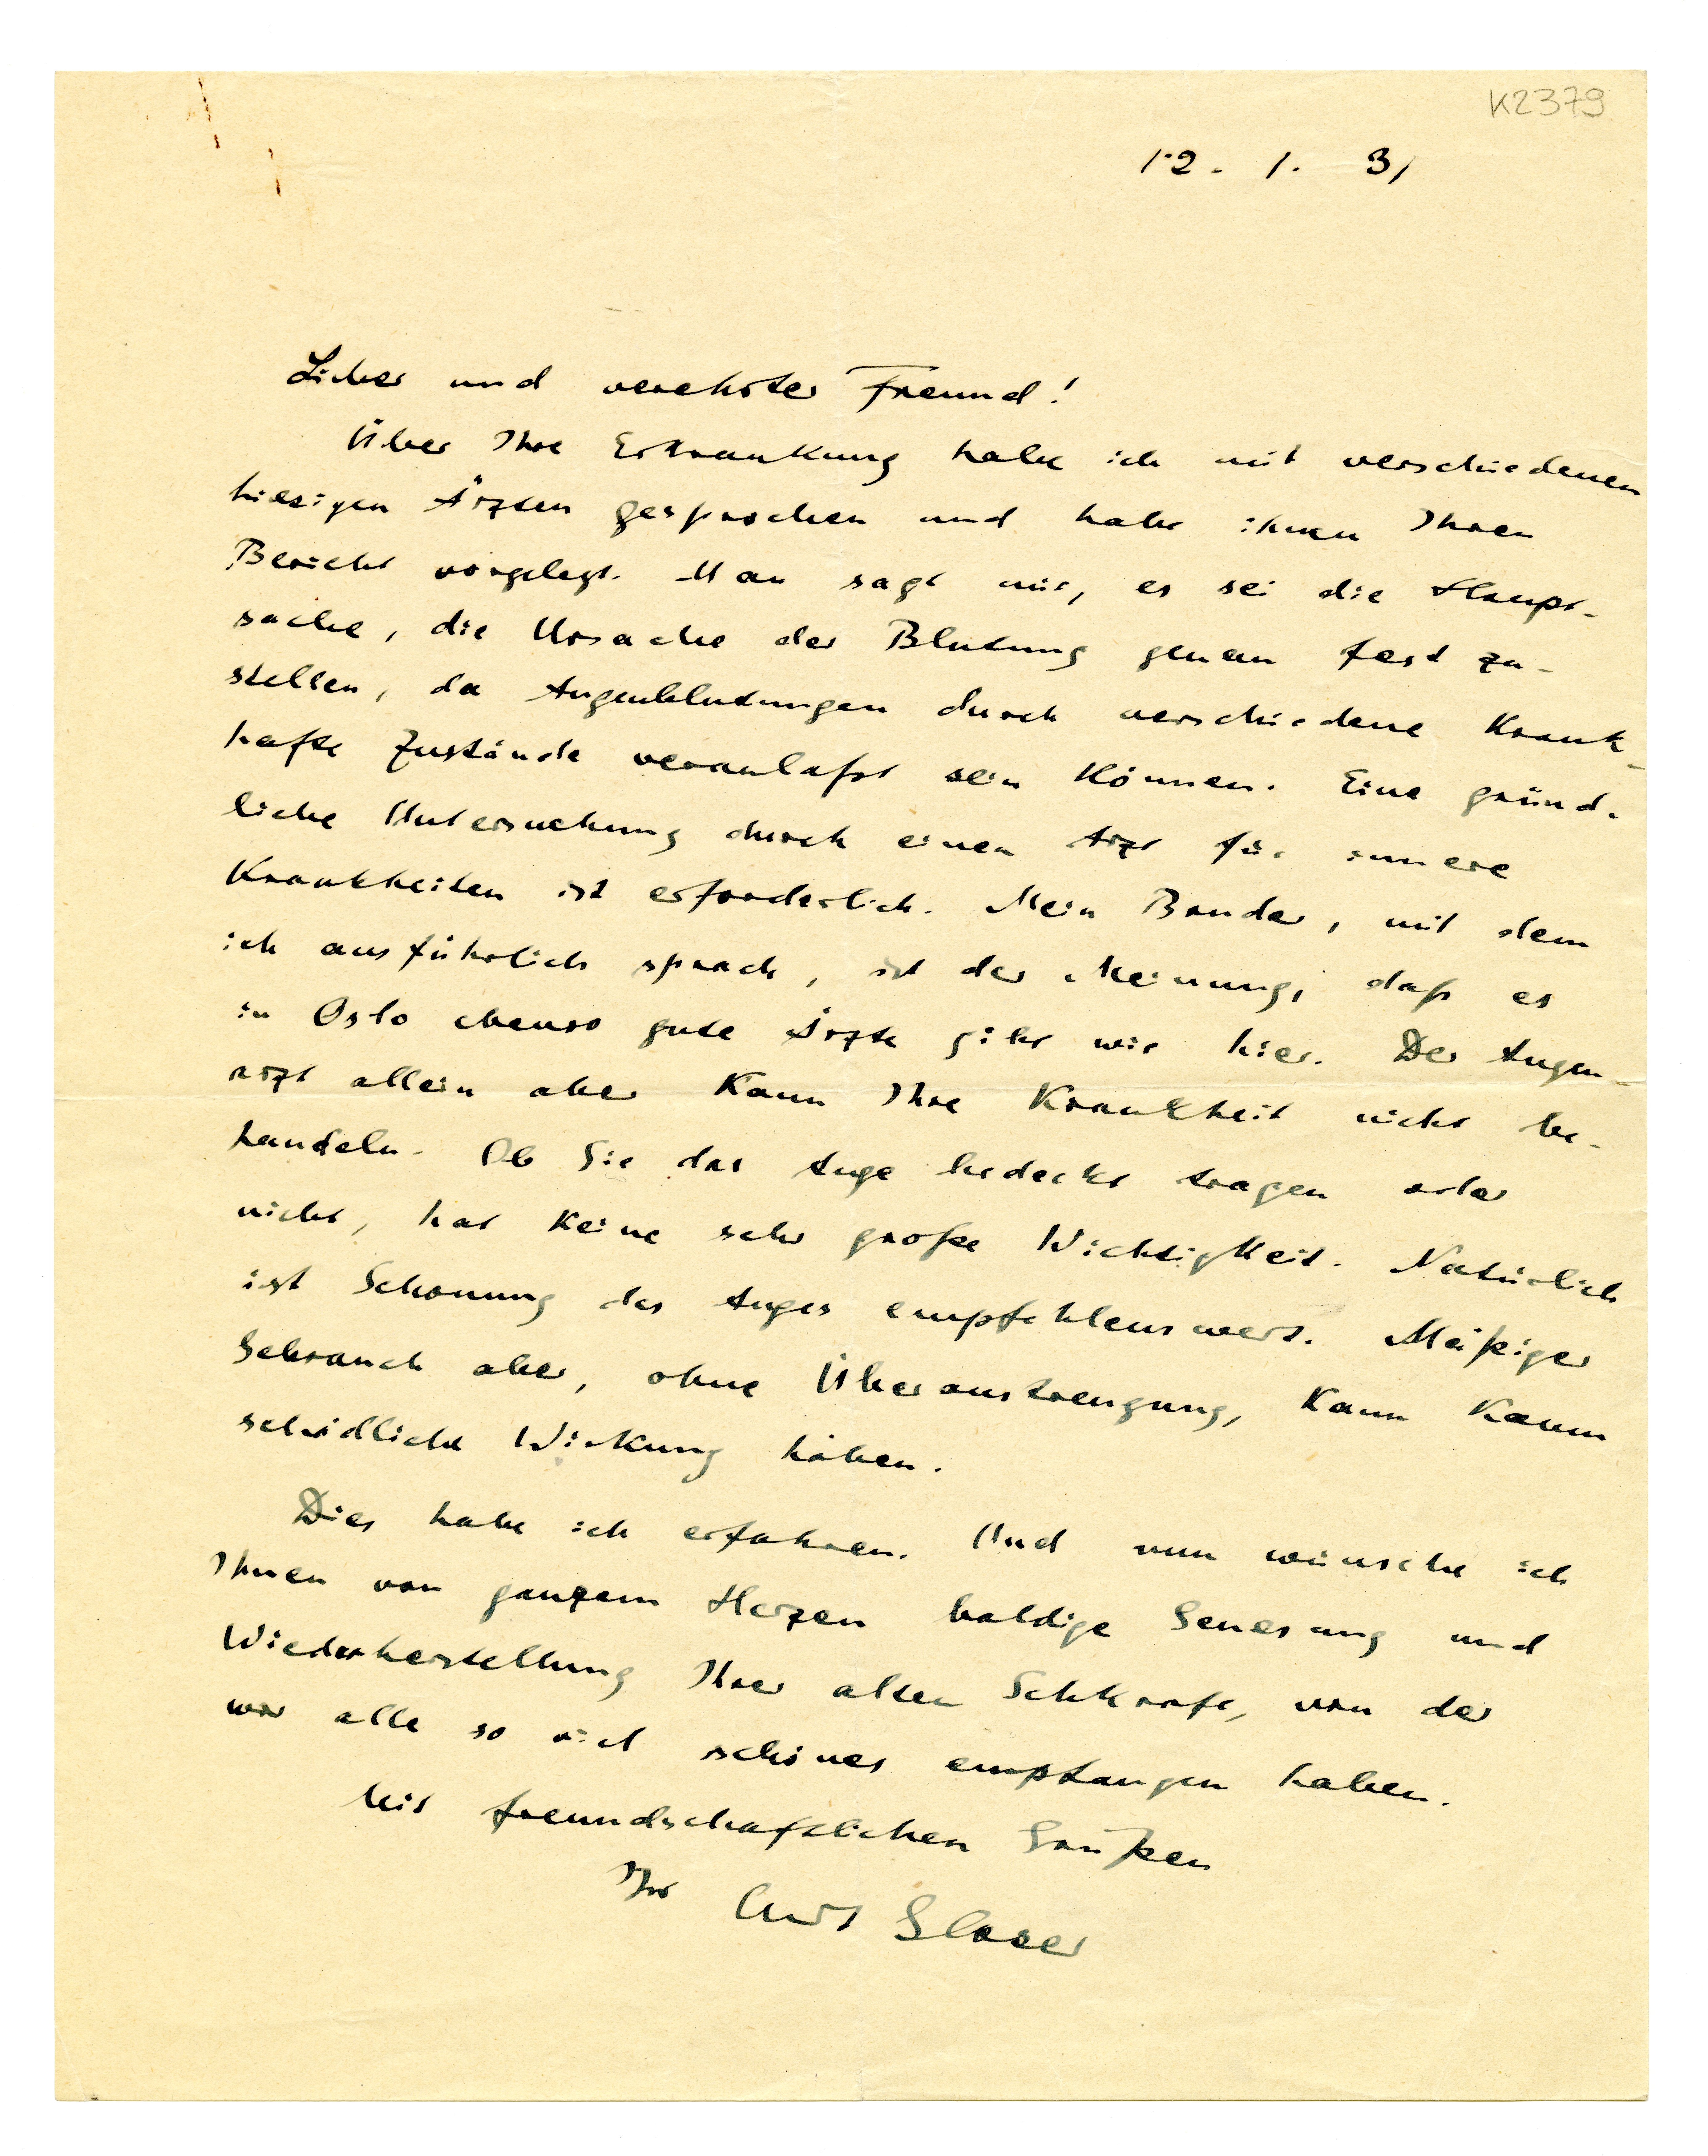 K2379
12. 1. 31
Lieber und verehrter Freund!
Über Ihre Erkrankung habe ich mit verschiedenen
hiesigen Ärzten gesprochen und habe ihnen Ihren
Bericht vorgelegt. Man sagt mir, es sei die Haupt-
sache, die Ursache der Blutung genau fest zu-
stellen, da Augenblutungen durch verschiedene krank-
hafte Zustände veranlaßt sein können. Eine gründ-
liche Untersuchung durch einen Arzt für innere
Krankheiten ist erforderlich. Mein Bruder, mit dem
ich ausführlich sprach, ist der Meinung, daß es
in Oslo ebenso gute Ärzte gibt wie hier. Der Augen-
arzt allein aber kann Ihre Krankheit nicht be-
handeln. Ob Sie das Auge bedeckt tragen oder
nicht, hat keine sehr große Wichtigkeit. Natürlich
ist Schonung des Auges empfehlenswert. Mäßiger
Gebrauch aber, ohne Überanstrengung, kann kaum
schädliche Wirkung haben.
Dies habe ich erfahren. Und nun wünsche ich
Ihnen von ganzem Herzen baldige Genesung und
Wiederherstellung Ihrer alten Sehkraft, von der
wir alle so viel schönes empfangen haben.
Mit freundschaftlichen Grüßen
Ihr Curt Glaser